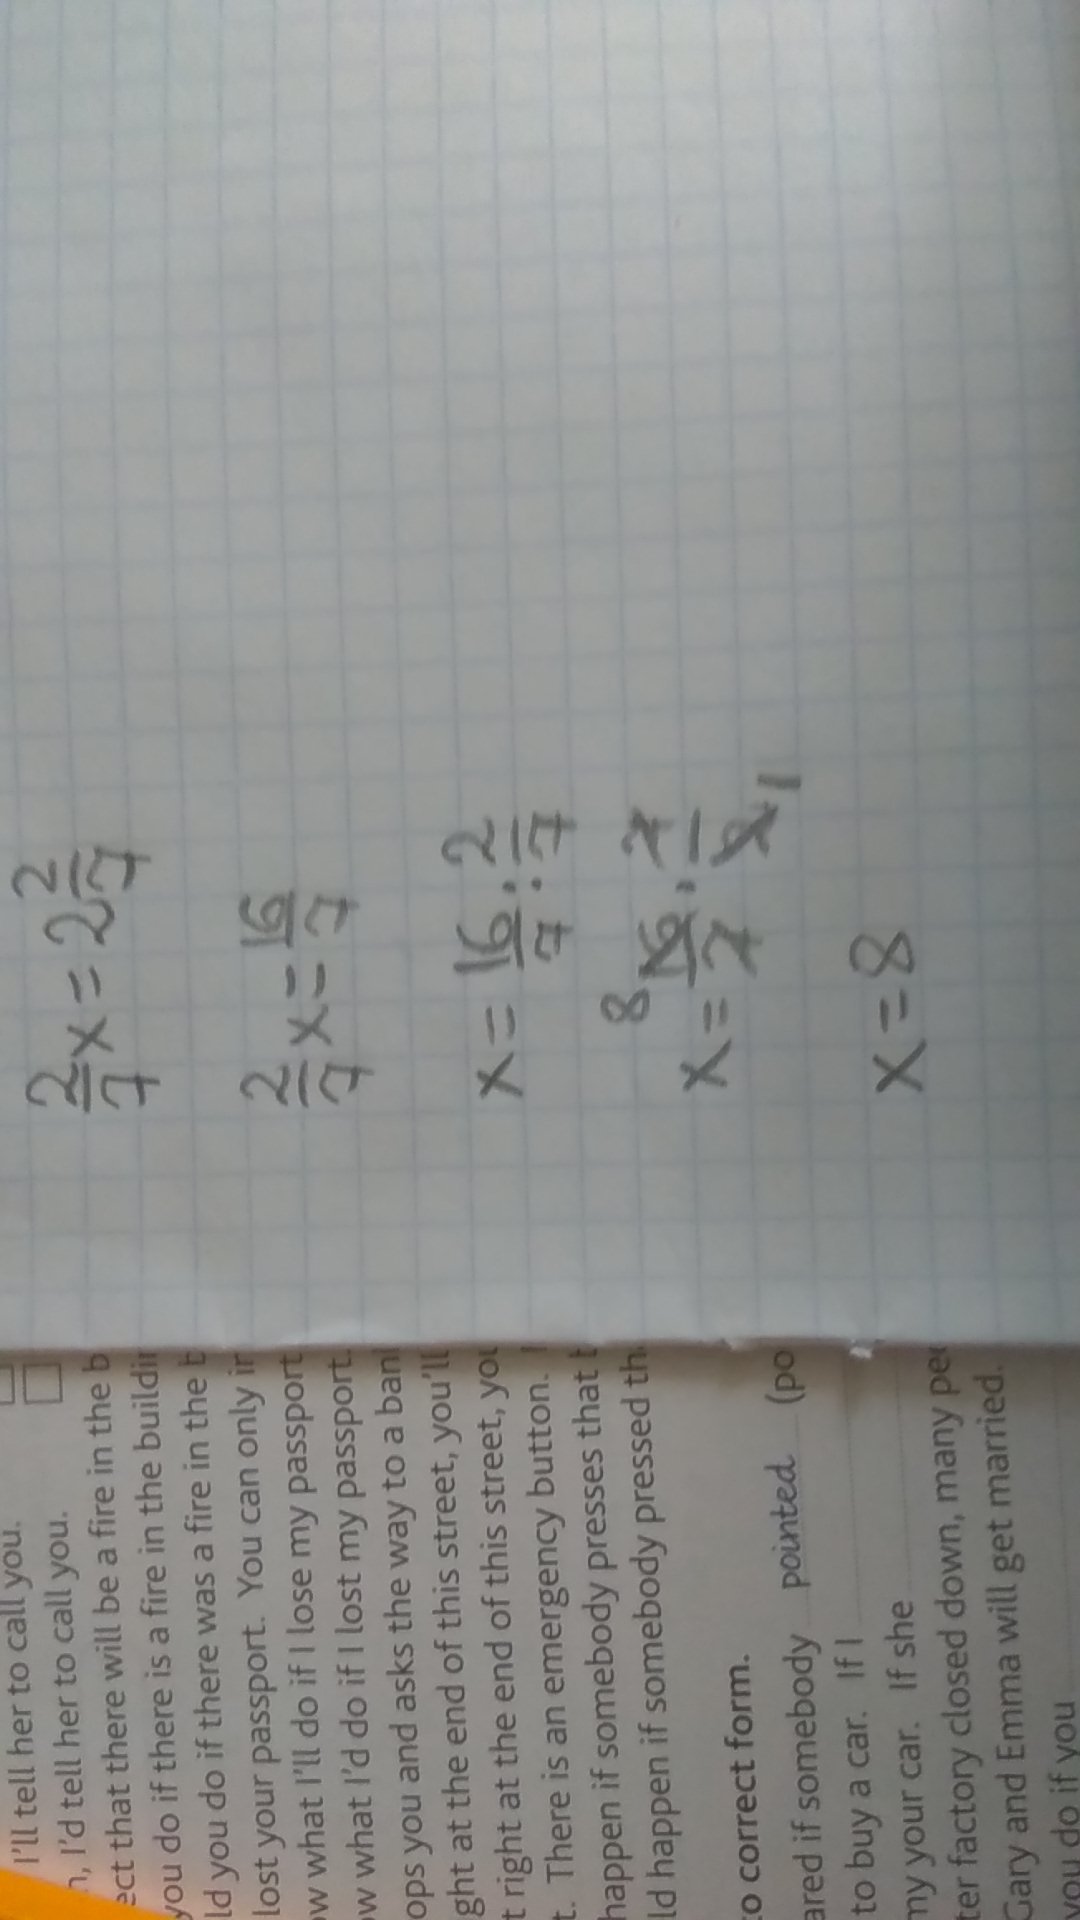 2/7 x = 2 2/7
2/7 x = 16/7
x = 16/7 : 2/7
x = 16/7 · 7/2 8 1
x = 8
I'll tell her to call you.
I'd tell her to call you.
ect that there will be a fire in the b
you do if there is a fire in the buildi
ld you do if there was a fire in the b
lost your passport. You can only i
ow what I'll do if I lose my passport
ow what I'd do if I lost my passport.
ops you and asks the way to a ban
ght at the end of this street, you'll
t right at the end of this street, you
t. There is an emergency button.
happen if somebody presses that
ld happen if somebody pressed th
to correct form.
ared if somebody pointed (po
to buy a car. If I
my your car. If she
ter factory closed down, many pe
Gary and Emma will get married.
you do if you